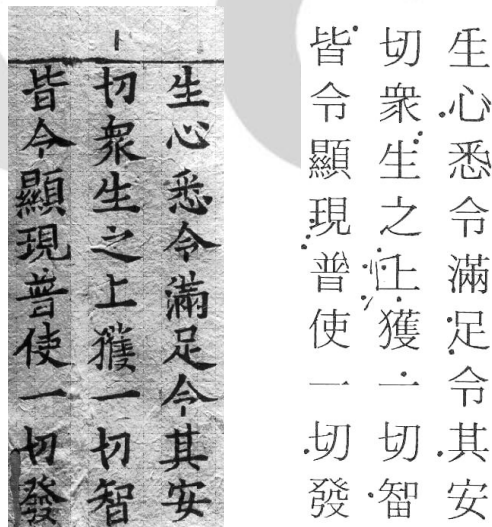 生心悉令滿足令其安
切衆生之上獲一切智
皆令顯現普使一切發
生心悉令滿足令其安
切衆生之上獲一切智
皆令顯現普使一切發